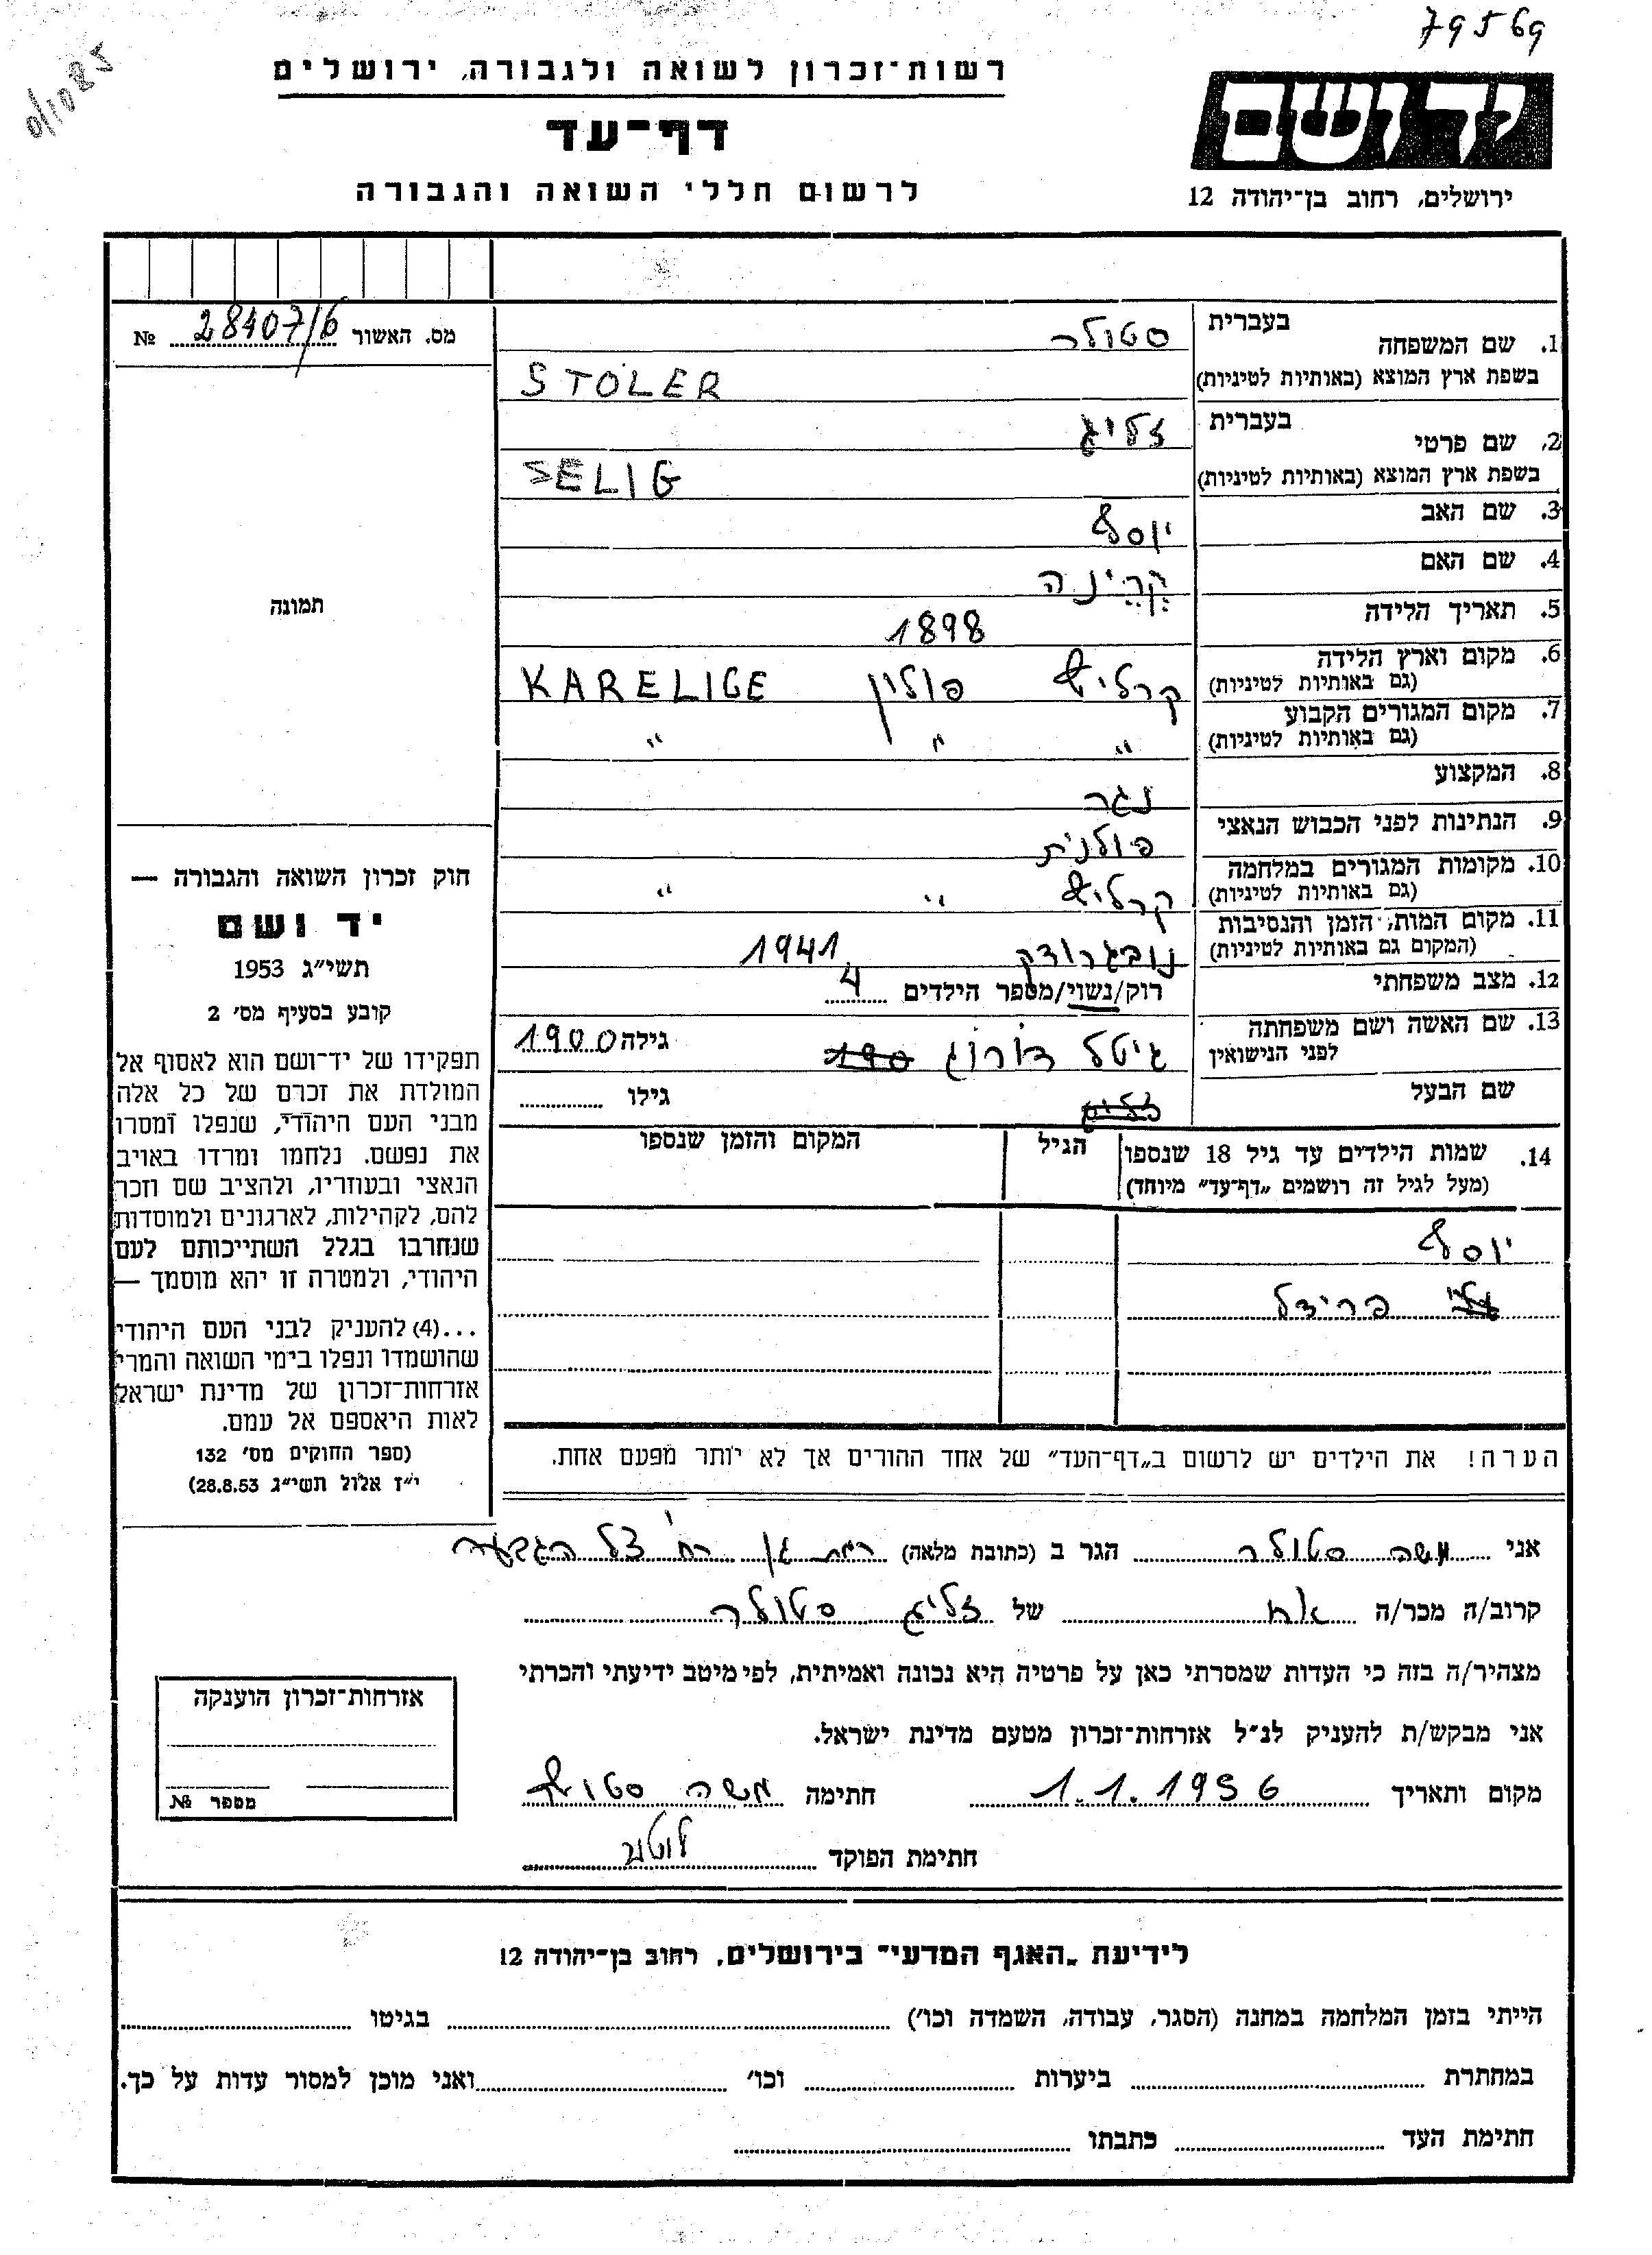 79569
רשות־זכרון לשואה ולגבורה, ירושלים
דף־עד
לרשום חללי השואה והגבורה
יד ושם
ירושלים, רחוב בן־יהודה 12
מס. האשור 28407/6 №
בעברית
1. שם המשפחה סטולר
בשפת ארץ המוצא (באותיות לטיניות) STOLER
בעברית
2. שם פרטי זליג
בשפת ארץ המוצא (באותיות לטיניות) SELIG
3. שם האב יוסף
4. שם האם
5. תאריך הלידה 1898
6. מקום וארץ הלידה
(גם באותיות לטיניות) קרליץ פולין KARELIGE
7. מקום המגורים הקבוע
(גם באותיות לטיניות) " " "
8. המקצוע נגר
9. הנתינות לפני הכבוש הנאצי פולנית
10. מקומות המגורים במלחמה
(גם באותיות לטיניות) קרליץ " "
11. מקום המות, הזמן והנסיבות
(המקום גם באותיות לטיניות) נובגרודק 1941
12. מצב משפחתי רוק/נשוי/מספר הילדים 4
13. שם האשה ושם משפחתה
לפני הנישואין גיטל גילה 1900
שם הבעל גילו
14. שמות הילדים עד גיל 18 שנספו הגיל המקום והזמן שנספו
(מעל לגיל זה רושמים "דף־עד" מיוחד)
יוסף
פרידל
הערה! את הילדים יש לרשום ב"דף־העד" של אחד ההורים אך לא יותר מפעם אחת.
תמונה
חוק זכרון השואה והגבורה —
יד ושם
תשי"ג 1953
קובע בסעיף מס' 2
תפקידו של יד־ושם הוא לאסוף אל
המולדת את זכרם של כל אלה
מבני העם היהודי, שנפלו ומסרו
את נפשם. נלחמו ומרדו באויב
הנאצי ובעוזריו, ולהציב שם וזכר
להם, לקהילות, לארגונים ולמוסדות
שנחרבו בגלל השתייכותם לעם
היהודי, ולמטרה זו יהא מוסמך —
...(4) להעניק לבני העם היהודי
שהושמדו ונפלו בימי השואה והמרי
אזרחות־זכרון של מדינת ישראל
לאות היאספם אל עמם.
(ספר החוקים מס' 132
י"ז אלול תשי"ג 28.8.53)
אני משה סטולר הגר ב (כתובת מלאה) רמת גן רח' צל הגבעה
קרוב/ה מכר/ה אח של זליג סטולר
מצהיר/ה בזה כי העדות שמסרתי כאן על פרטיה היא נכונה ואמיתית, לפי מיטב ידיעתי והכרתי
אני מבקש/ת להעניק לנ"ל אזרחות־זכרון מטעם מדינת ישראל.
מקום ותאריך 1.1.1956 חתימה משה
חתימת הפוקד
אזרחות־זכרון הוענקה
מספר №
לידיעת "האגף המדעי" בירושלים, רחוב בן־יהודה 12
הייתי בזמן המלחמה במחנה (הסגר, עבודה, השמדה וכו') בגיטו
במחתרת ביערות וכו' ואני מוכן למסור עדות על כך.
חתימת העד כתבתו